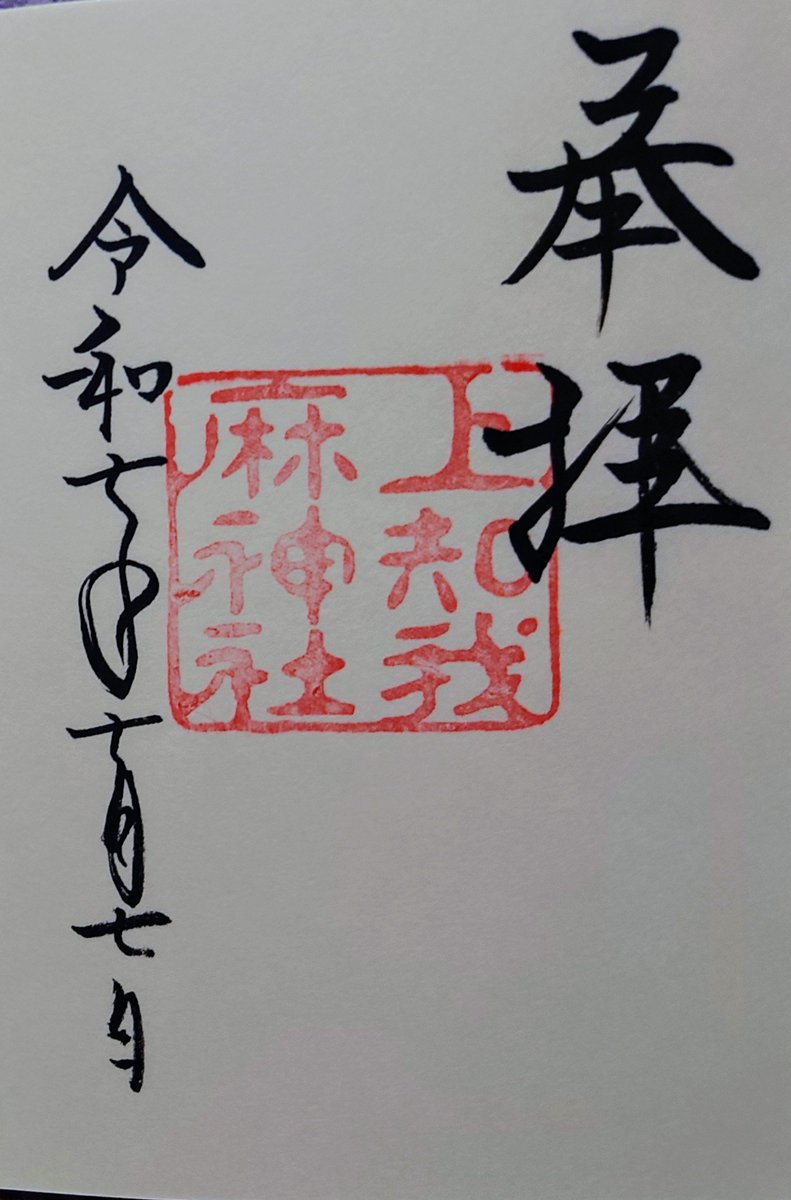 奉拝
上知我
麻神社
令和七年十月七日